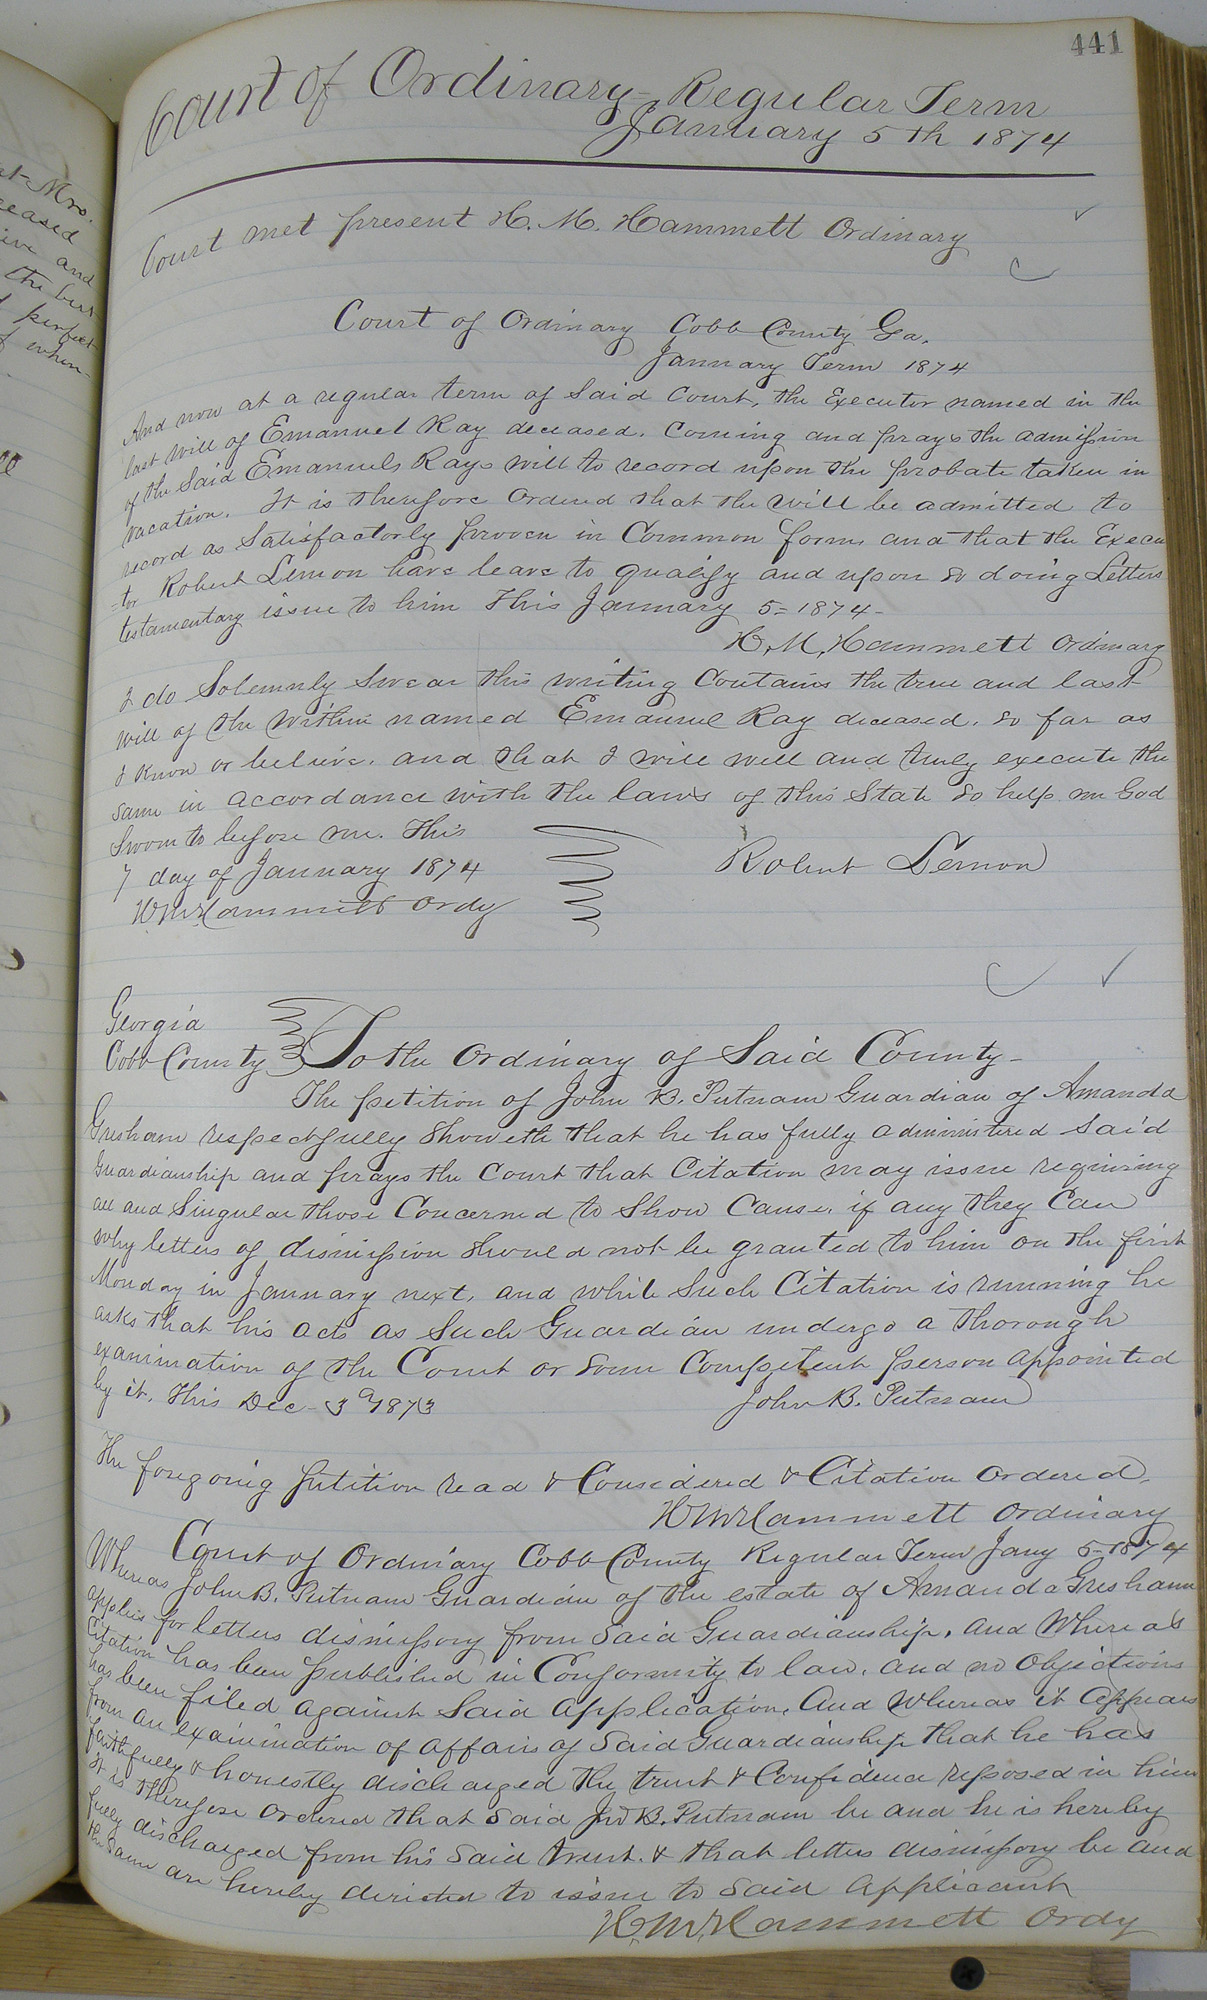 441
Court of Ordinary - Regular Term
January 5th 1874
Court met present H. M. Hammett Ordinary
Court of Ordinary Cobb County Ga.
January Term 1874
And now at a regular term of Said Court, the Executor named in the
last will of Emanuel Ray deceased. Coming and prays the admission
of the Said Emanuels Rays will to record upon the probate taken in
vacation. It is therefore Ordered that the will be admitted to
record as Satisfactorly proven in Common form, and that the Execu
-tor Robert Lemon have leave to qualify and upon so doing Letters
testamentary issue to him This January 5= 1874-
H. M. Hammett Ordinary
I do Solemnly Swear this writing Contains the true and last
will of the within named Emanuel Ray deceased. so far as
I know or believe. and that I will well and truly execute the
same in accordance with the laws of this State So help me God
Sworn to before me. This
7 day of January 1874
Robert Lemon
H. M. Hammett Ordy
Georgia
Cobb County To the Ordinary of Said County-
The petition of John B. Putnam Guardian of Amanda
Gresham respectfully Showeth that he has fully administered Said
Guardianship and prays the Court that Citation may issue requiring
all and Singular those Concerned to Show Cause, if any they Can
why letters of dismission should not be granted to him on the first
Monday in January next, and while Such Citation is running he
asks that his acts as Such Guardian undergo a thorough
examination of the Court or some Competent person appointed
by it. This Dec- 3d 1873
John B. Putnam
The foregoing petition read & Considered & Citation Ordered.
H. M. Hammett Ordinary
Court of Ordinary Cobb County Regular Term Jany 5-1874
Whereas John B. Putnam Guardian of the estate of Amanda Gresham
applies for letters dismissory from Said Guardianship, and Whereas
Citation has been published in Conformity to law, and no Objections
has been filed against Said application. And whereas it appears
from an examination of affairs of Said Guardianship that he has
faithfully & honestly discharged the trust & Confidence reposed in him
it is therefore Ordered that Said Jno B. Putnam be and he is hereby
fully discharged from his Said trust. & that letters dismissory be and
the Same are hereby directed to issue to Said Applicant
H. M. Hammett Ordy